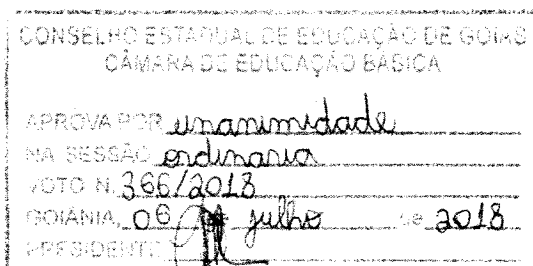 CONSELHO ESTADUAL DE EDUCAÇÃO DE GOIÁS
CÂMARA DE EDUCAÇÃO BÁSICA
APROVA POR unanimidade
NA SESSÃO ordinaria
VOTO N. 366/2018
GOIÂNIA, 06 de julho de 2018
PRESIDENTE